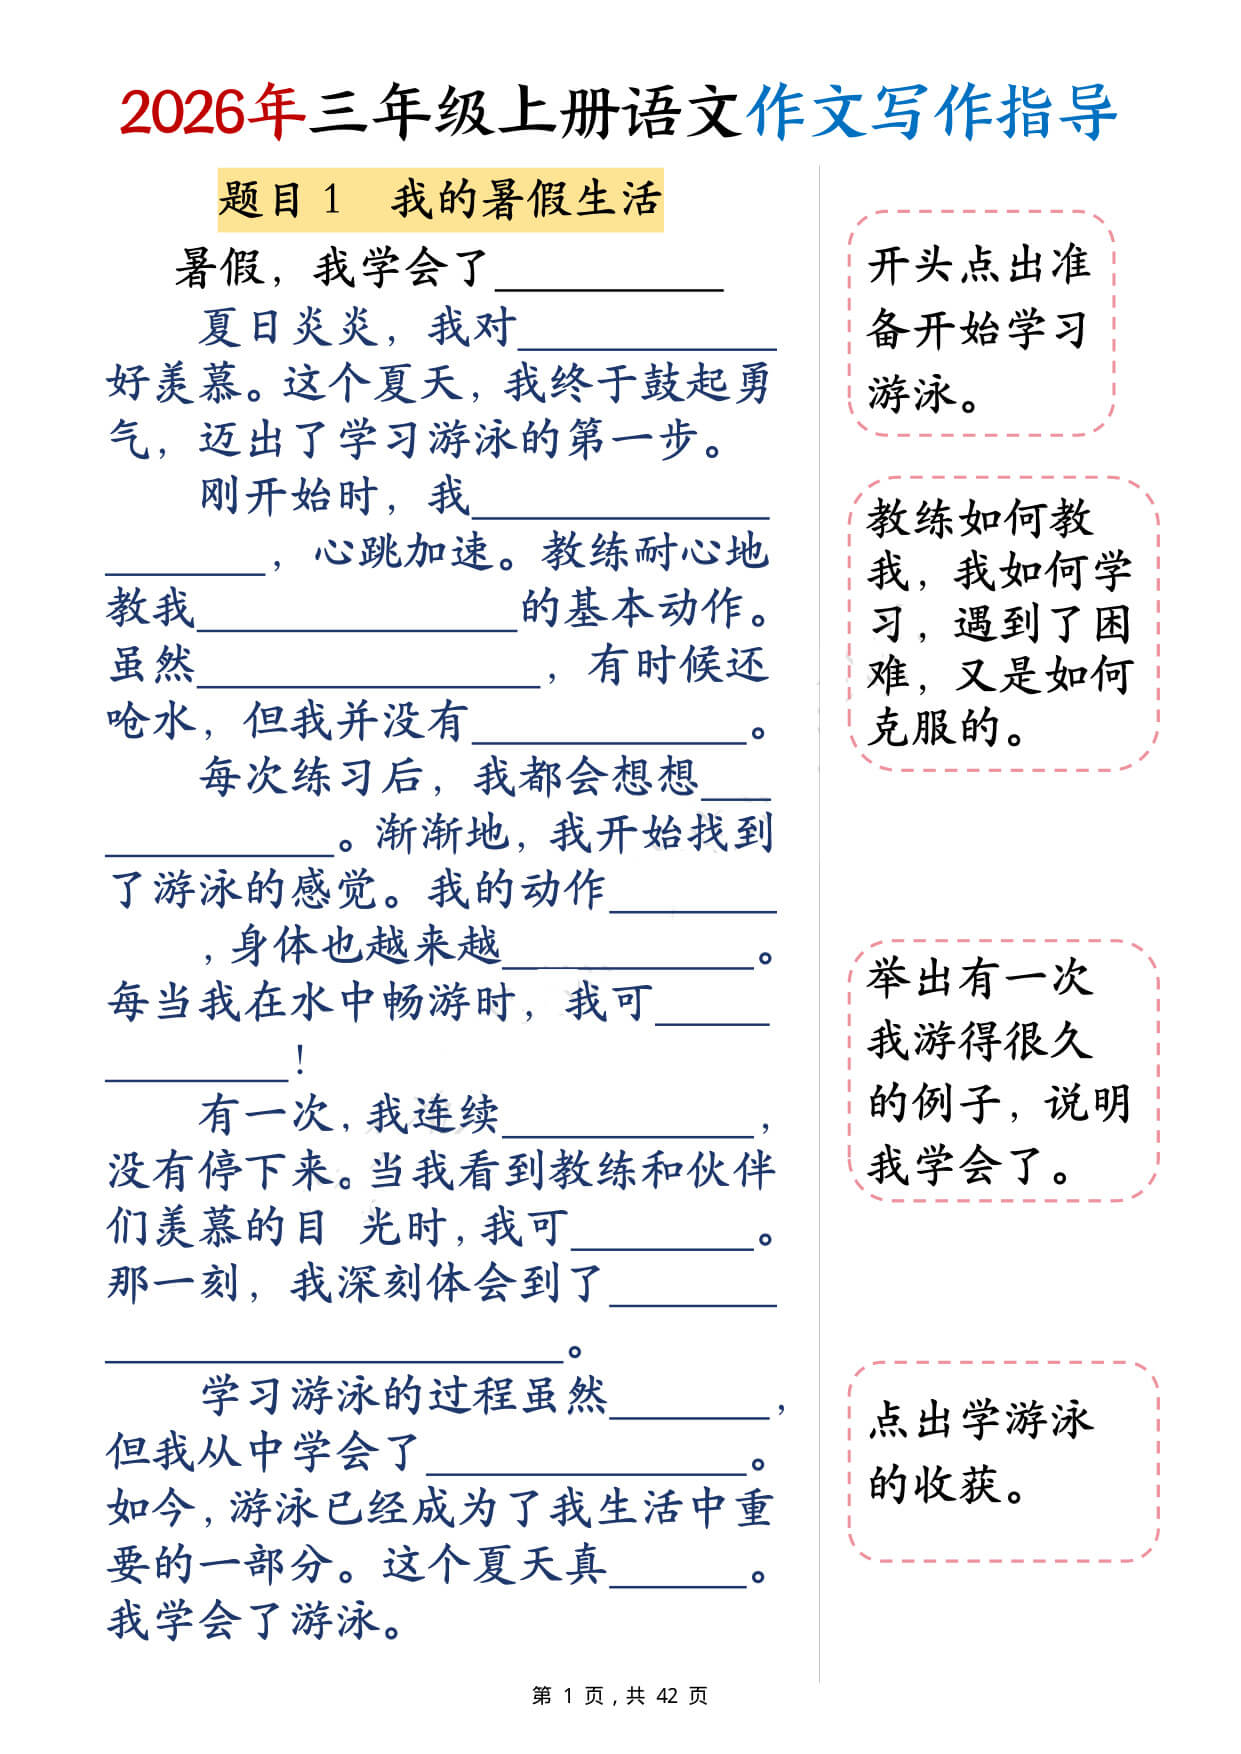 2026年三年级上册语文作文写作指导
题目1 我的暑假生活
暑假，我学会了__________
夏日炎炎，我对___________
好羡慕。这个夏天，我终于鼓起勇
气，迈出了学习游泳的第一步。
刚开始时，我_____________
_______，心跳加速。教练耐心地
教我______________的基本动作。
虽然_______________，有时候还
呛水，但我并没有____________。
每次练习后，我都会想想___
__________。渐渐地，我开始找到
了游泳的感觉。我的动作_______
，身体也越来越___________。
每当我在水中畅游时，我可_____
________！
有一次，我连续___________，
没有停下来。当我看到教练和伙伴
们羡慕的目 光时，我可________。
那一刻，我深刻体会到了_______
____________________。
学习游泳的过程虽然_______，
但我从中学会了______________。
如今，游泳已经成为了我生活中重
要的一部分。这个夏天真______。
我学会了游泳。
开头点出准
备开始学习
游泳。
教练如何教
我，我如何学
习，遇到了困
难，又是如何
克服的。
举出有一次
我游得很久
的例子，说明
我学会了。
点出学游泳
的收获。
第 1 页，共 42 页